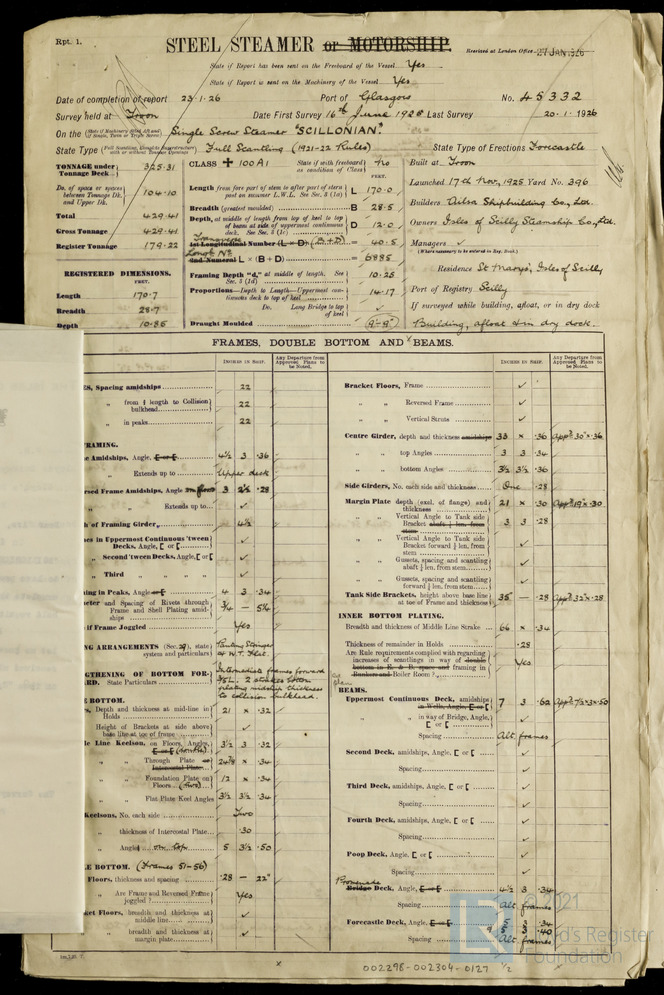 Rpt. 1.
STEEL STEAMER or MOTORSHIP.
Received at London Office 27 JAN 1926
State if Report has been sent on the Freeboard of the Vessel Yes
State if Report is sent on the Machinery of the Vessel Yes
Date of completion of report 23·1·26 Port of Glasgow No. 45332
Survey held at Troon Date First Survey 16th June 1925 Last Survey 20·1·1926
On the Single Screw Steamer "SCILLONIAN."
State Type Full Scantling (1921-22 Rules) State Type of Erections Forecastle
TONNAGE under Tonnage Deck 325·31
Do. of space or spaces between Tonnage Dk. and Upper Dk. 104·10
Total 429·41
Gross Tonnage 429·41
Register Tonnage 179·22
REGISTERED DIMENSIONS.
FEET.
Length 170·7
Breadth 28·7
Depth 10·85
CLASS 100 A1 State if with freeboard as condition of Class No
FEET.
Length from fore part of stem to after part of stern post on summer L.W.L. See Sec. 3 (1a) L 170·0
Breadth (greatest moulded) B 28·5
Depth, at middle of length from top of keel to top of beam at side of uppermost continuous deck. See Sec. 3 (1c) D 12·0
Transverse
1st Longitudinal Number (L × D) (B+D) = 40·5
Longl No
2nd Numeral L × (B + D) = 6885
Framing Depth "d," at middle of length. See Sec. 3 (1d) 10·25
Proportions—Depth to Length—Uppermost continuous deck to top of keel 14·17
Do. Long Bridge to top of keel ✓
Draught Moulded 9'-9"
Built at Troon
Launched 17th Nov, 1925 Yard No. 396
Builders Ailsa Shipbuilding Co., Ltd.
Owners Isles of Scilly Steamship Co., Ltd.
Managers ✓
(Where necessary to be entered in Reg. Book)
Residence St Mary's, Isles of Scilly
Port of Registry Scilly
If surveyed while building, afloat, or in dry dock
Building, afloat & in dry dock.
FRAMES, DOUBLE BOTTOM AND BEAMS.
INCHES IN SHIP.
Any Departure from Approved Plans to be Noted.
ES, Spacing amidships 22
" from ¾ length to Collision bulkhead 22
" in peaks 22
FRAMING.
e Amidships, Angle, 4½ 3 ·36
" Extends up to Upper deck
rsed Frame Amidships, Angle 3 2½ ·28
" Extends up to ✓
h of Framing Girder 4½
es in Uppermost Continuous 'tween Decks, Angle, [ or [ ✓
" Second 'tween Decks, Angle, [ or [ ✓
" Third " " " " ✓
ing in Peaks, Angle 4 3 ·34
eter and Spacing of Rivets through Frame and Shell Plating amidships ¾ — 5¼
if Frame Joggled Yes
NG ARRANGEMENTS (Sec. 29), state system and particulars Panting Stringer & W.T. Flat.
GTHENING OF BOTTOM FORWARD. State Particulars Intermediate frames forward ⅗ L. 2 strakes bottom plating midship thickness to collision bulkhead.
E BOTTOM.
s, Depth and thickness at mid-line in Holds 21 × ·32
Height of Brackets at side above base line at toe of frame ✓
le Line Keelson, on Floors, Angles, (double) 3½ 3 ·32
" " Through Plate 24⅝ × ·34
" " Foundation Plate on Floors 12 × ·34
" " Flat Plate Keel Angles 3½ 3½ ·34
Keelsons, No. each side Two
" thickness of Intercostal Plate ·30
" Angle on top 5 3½ ·50
LE BOTTOM. (Frames 51-56)
Floors, thickness and spacing ·28 — 22"
" Are Frame and Reversed Frame joggled? Yes
ket Floors, breadth and thickness at middle line ✓
" breadth and thickness at margin plate ✓
INCHES IN SHIP.
Any Departure from Approved Plans to be Noted.
Bracket Floors, Frame ✓
" " Reversed Frame ✓
" " Vertical Struts ✓
Centre Girder, depth and thickness amidships 33 × ·36 Appd 30"×·36
" " top Angles 3 3 ·34
" " bottom Angles 3½ 3½ ·36
Side Girders, No. each side and thickness One ·28
Margin Plate depth (excl. of flange) and thickness 21 × ·30 Appd 19"×·30
" " Vertical Angle to Tank side Bracket abaft ¼ len. from stem 3 3 ·28
" " Vertical Angle to Tank side Bracket forward ¼ len. from stem ✓
" " Gussets, spacing and scantling abaft ¼ len. from stem ✓
" " Gussets, spacing and scantling forward ¼ len. from stem ✓
Tank Side Brackets, height above base line at toe of Frame and thickness 35" — ·28 Appd 32"×·28
INNER BOTTOM PLATING.
Breadth and thickness of Middle Line Strake 66 × ·34
Thickness of remainder in Holds ·28
Are Rule requirements complied with regarding increases of scantlings in way of double bottom in E. & B. space and framing in Bunkers and Boiler Room? Yes
BEAMS.
Uppermost Continuous Deck, amidships in Wells, Angle, [ or [ 7 3 ·62 Appd 7½×3×·50
" " in way of Bridge, Angle, [ or [ ✓
Spacing Alt. frames
Second Deck, amidships, Angle, [ or [ ✓
Spacing ✓
Third Deck, amidships, Angle, [ or [ ✓
Spacing ✓
Fourth Deck, amidships, Angle, [ or [ ✓
Spacing ✓
Poop Deck, Angle, [ or [ ✓
Spacing ✓
Promenade
Bridge Deck, Angle, 4½ 3 ·34
Spacing Alt frames
Forecastle Deck, Angle, 5 3 ·34
Spacing Alt. frames
© 2021
Lloyd's Register
Foundation
002298-002304-0127 1/2